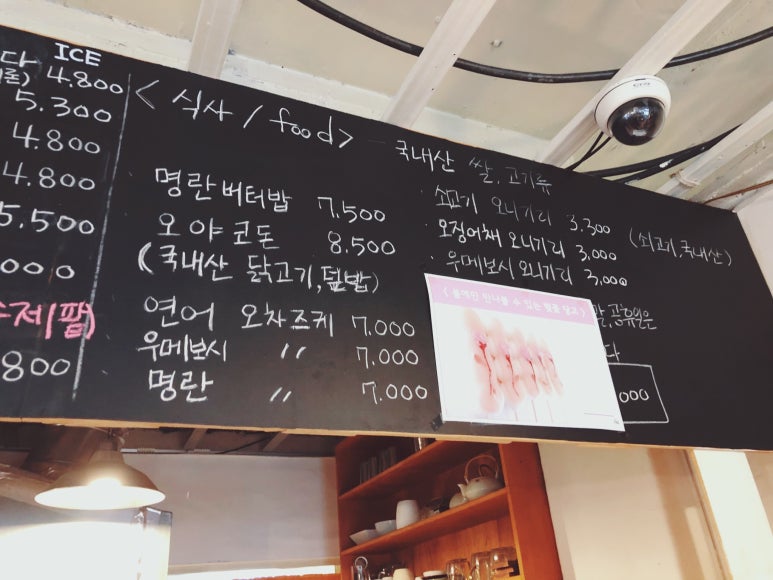 ICE
4.800
5.300
4.800
4.800
5.500
000
수제팥)
800
< 식사 / food >
국내산 쌀, 고기류
명란버터밥 7.500
오야코돈 8.500
(국내산 닭고기, 덮밥)
연어 오차즈케 7.000
우메보시 〃 7.000
명란 〃 7.000
· 쇠고기 오니기리 3.300 (쇠고기, 국내산)
오징어채 오니기리 3,000
· 우메보시 오니기리 3,000
< 봄에만 만나볼 수 있는 벚꽃 당고 >
공휴일은
다
000